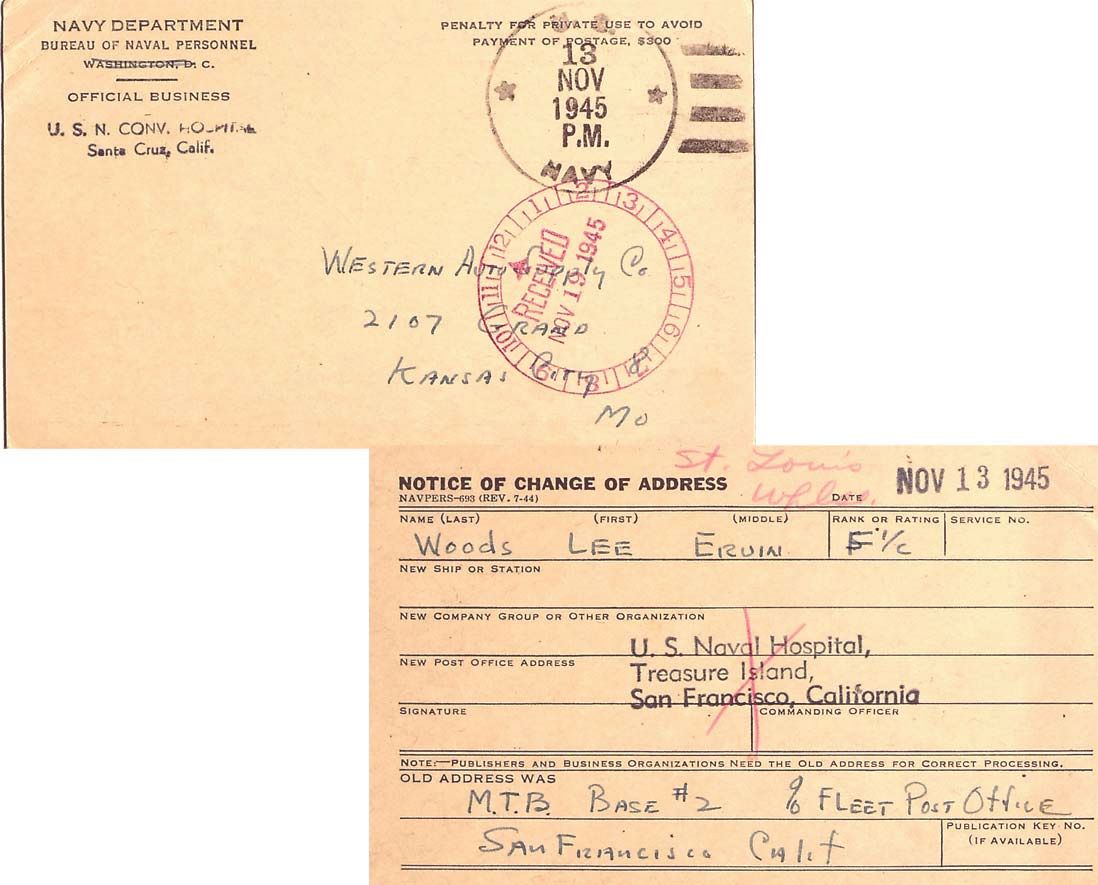 NAVY DEPARTMENT
BUREAU OF NAVAL PERSONNEL
WASHINGTON, D. C.
OFFICIAL BUSINESS
U. S. N. CONV. HOSPITAL
Santa Cruz, Calif.
PENALTY FOR PRIVATE USE TO AVOID
PAYMENT OF POSTAGE, $300
U. S.
13
NOV
1945
P.M.
NAVY
12 1 2 3 4 5 6 7 8 9 10 11
RECEIVED
NOV 19 1945
WESTERN AUTO SUPPLY CO.
2107 GRAND
KANSAS CITY 8
MO
St. Louis
NOTICE OF CHANGE OF ADDRESS
NAVPERS-693 (REV. 7-44)
DATE NOV 13 1945
NAME (LAST) (FIRST) (MIDDLE) RANK OR RATING SERVICE NO.
WOODS LEE ERVIN F 1/C
NEW SHIP OR STATION
NEW COMPANY GROUP OR OTHER ORGANIZATION
U. S. Naval Hospital,
NEW POST OFFICE ADDRESS
Treasure Island,
San Francisco, California
SIGNATURE COMMANDING OFFICER
NOTE:—PUBLISHERS AND BUSINESS ORGANIZATIONS NEED THE OLD ADDRESS FOR CORRECT PROCESSING.
OLD ADDRESS WAS
M.T.B. BASE #2 % FLEET POST OFFICE
PUBLICATION KEY NO.
(IF AVAILABLE)
SAN FRANCISCO CALIF